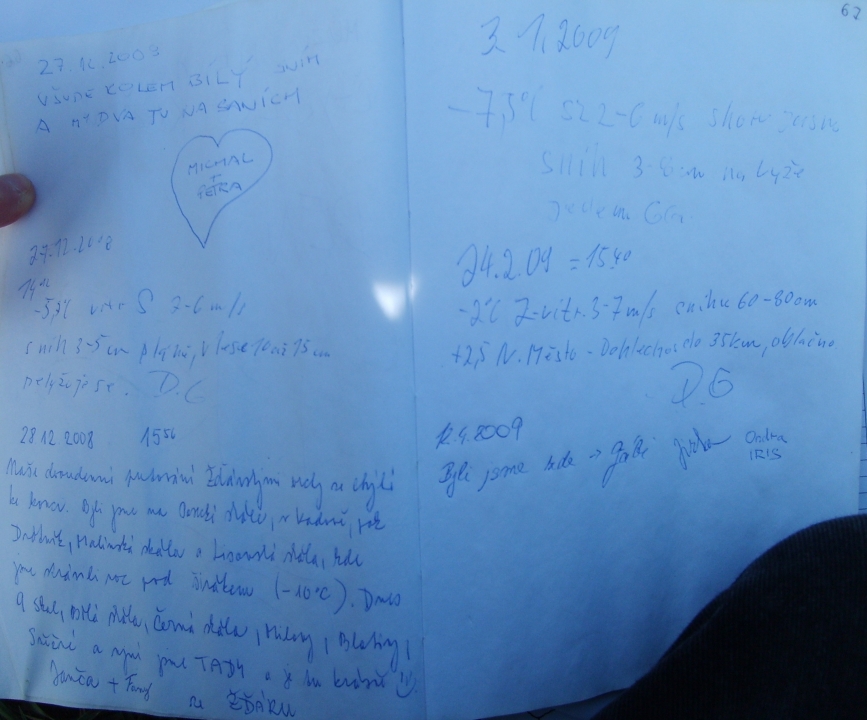 27.12.2008
VŠUDE KOLEM BÍLÝ SNÍH
A MY DVA TU NA SANÍCH
MICHAL
+
PETRA
27.12.2008
14
-5,3°C vítr S 2-6 m/s
sníh 3-5 cm v lese 10 až 15 cm
nelyžuje se. D.G
28.12.2008 15 56
Naše dvoudenní putování Žďárskými vrchy se chýlí
ke konci. Byli jsme na skále, v Kadově,
Drátník, Malinská skála a Lisovská skála, kde
jsme strávili noc pod širákem (-10°C). Dnes
9 skal, Bílá skála, Černá skála, Milovy, Blatiny,
a nyní jsme TADY a je tu krásně
Janča + 
ze ŽĎÁRU
62
3.1.2009
-7,5°C SZ 2-6 m/s skoro jasno
sníh 3-8 cm na lyže
jedem
24.2.09 = 15:40
-2°C Z-vítr. 3-7 m/s sníhu 60-80 cm
+2,5 N. Město - Dohlednost do 35km, oblačno
D.G
12.4.2009
Byli jsme zde → Jirka Ondra
IRIS